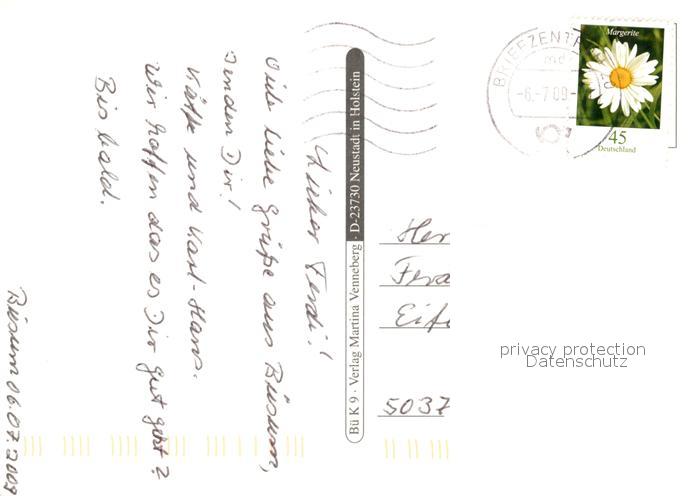 Büsum 06.07.2009
Lieber Ferdi!
Viele liebe Grüße aus Büsum,
senden Dir!
Käthe und Karl-Hans.
Wir hoffen das es Dir gut geht?
Bis bald.
Bü K 9 · Verlag Martina Venneberg · D-23730 Neustadt in Holstein
BRIEFZENTR
-6.-7.09-
Margerite
45
Deutschland
Her
Ferd
Eife
5037
privacy protection
Datenschutz